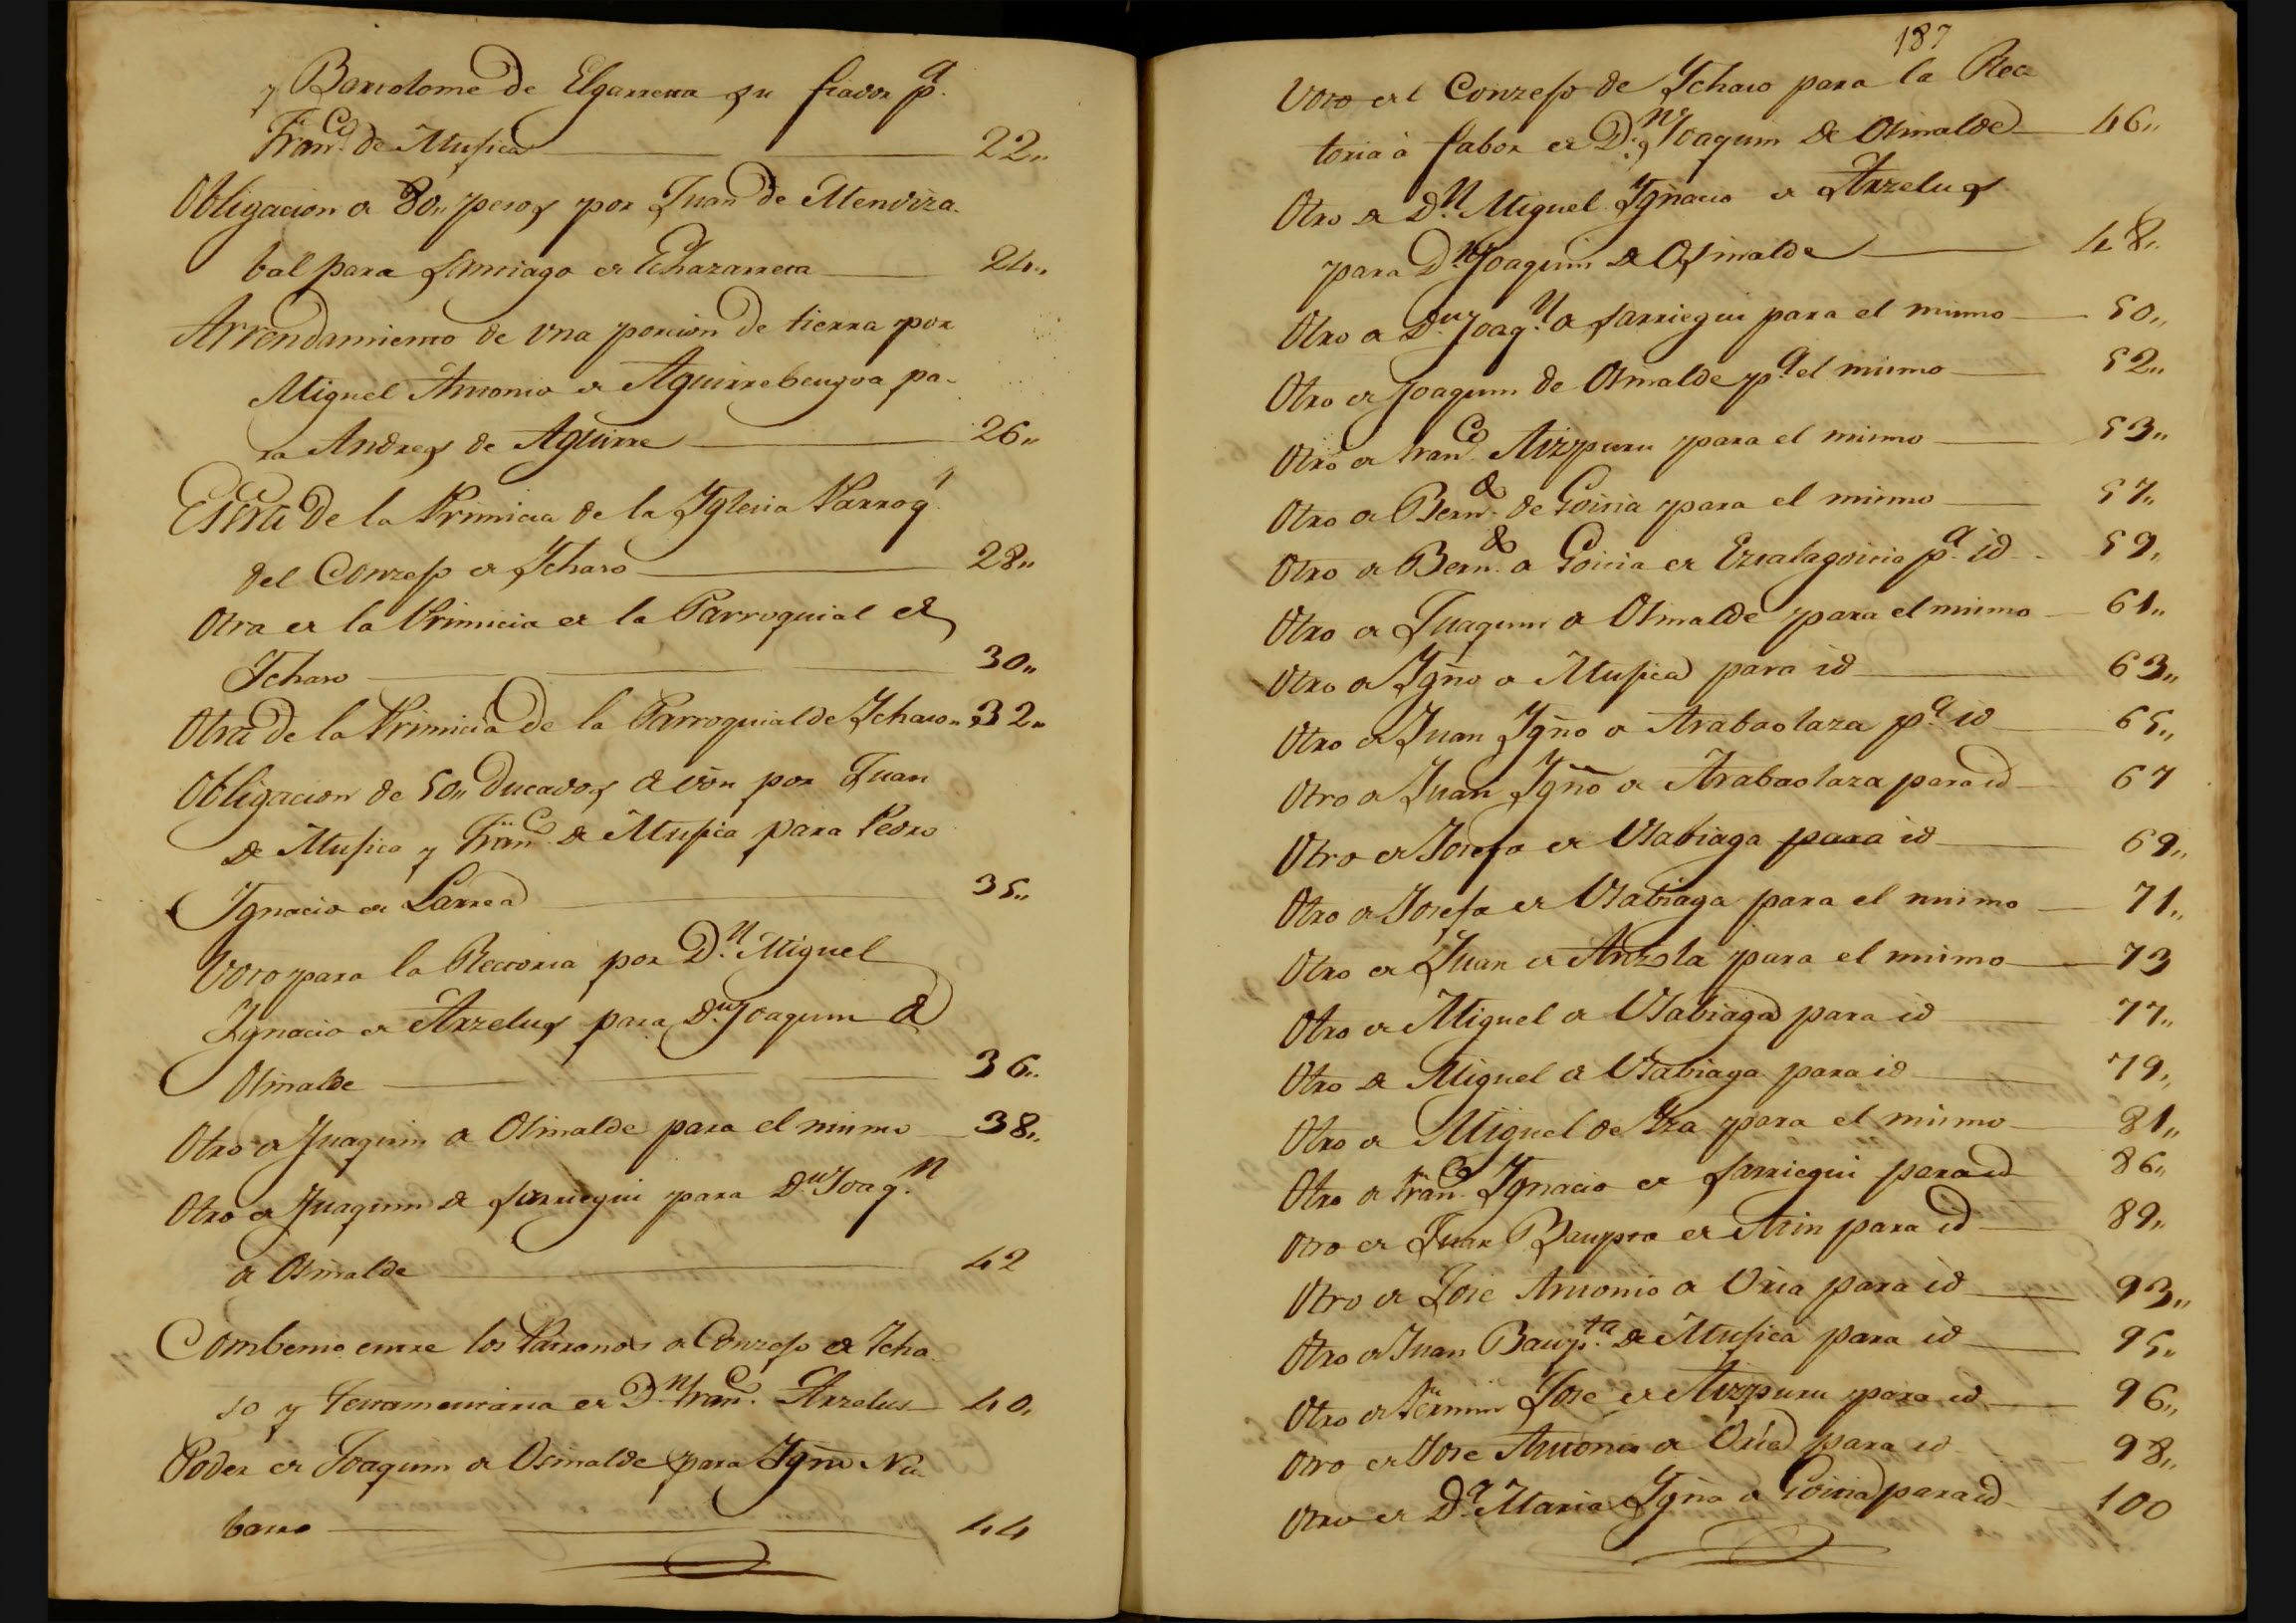 y Bartolome de Elgarresta su fiador p.a
Fran.co de Musica 22,,
Obligacion de 80,, pesos por Juan de Mendiza-
bal para Santiago de Echazarreta 24,,
Arrendamiento de vna porcion de tierra por
Miguel Antonio de Aguirrebengoa pa-
ra Andres de Aguirre 26,,
Essra de la Primicia de la Yglesia Parroq.l
del Conzejo de Ychaso 28,,
Otra de la Primicia de la Parroquial de
Ychaso 30,,
Otra de la Primicia de la Parroquial de Ychaso,, 32,,
Obligacion de 50,, Ducados de von por Juan
de Musica y Fran.co de Musica para Pedro
Ygnacio de Larrea 35,,
Voto para la Rectoria por D.n Miguel
Ygnacio de Arzelus para D.n Joaquin de
Osinalde 36,,
Otro de Juaquin de Osinalde para el mismo 38,,
Otro de Juaquin de Sarriegui para D.n Joaq.n
de Osinalde 42
Combenio entre los Patronos de Conzejo de Ycha-
so y Testamentaria de D.n Fran.co Arzelus 40,
Poder de Joaquin de Osinalde para Ygno Na-
barro 44
187
Voto del Conzejo de Ychaso para la Rec-
toria à fabor de D.n Joaquin de Osinalde 46,,
Otro de D.n Miguel Ygnacio de Arzelus
para D.n Joaquin de Osinalde 48,,
Otro de D.n Joaq.n de Sarriegui para el mismo 50,,
Otro de Joaquin de Osinalde p.a el mismo 52,,
Otro de Fran.co Aizpuru para el mismo 53,,
Otro de Bern.do de Goiria para el mismo 57,,
Otro de Bern.do de Goiria de Ezcalagoiria p.a id 59,
Otro de Juaquin de Osinalde para el mismo 61,,
Otro de Ygno de Musica para id 63,,
Otro de Juan Ygno de Arabaolaza p.a id 65,,
Otro de Juan Ygno de Arabaolaza para id 67
Otro de Josefa de Vsabiaga para id 69,,
Otro de Josefa de Vsabiaga para el mismo 71,,
Otro de Juan de Arizola para el mismo 73
Otro de Miguel de Vsabiaga para id 77,,
Otro de Miguel de Vsabiaga para id 79,,
Otro de Miguel de Yza para el mismo 81,,
Otro de Fran.co Ygnacio de Sarriegui para id 86,,
Otro de Juan Baupta de Arin para id 89,,
Otro de Jose Antonio de Vria para id 93,,
Otro de Juan Baup.ta de Musica para id 95,,
Otro de Fermin Jose de Aizpuru para id 96,,
Otro de Jose Antonio de Vria para id 98,,
Otro de D.a Maria Ygna de Goiria para id 100